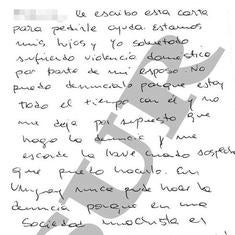 le escribo esta carta
para pedirle ayuda. Estamos
mis hijos y yo sobretodo
sufriendo violencia doméstica
por parte de mi esposo. No
puedo denunciarlo porque estoy
todo el tiempo con él y no
me deja por supuesto que
haga la denuncia y me
esconde la llave cuando sospecha
que puedo hacerlo. En
Uruguay nunca pude hacer la
denuncia porque en una
sociedad machista el